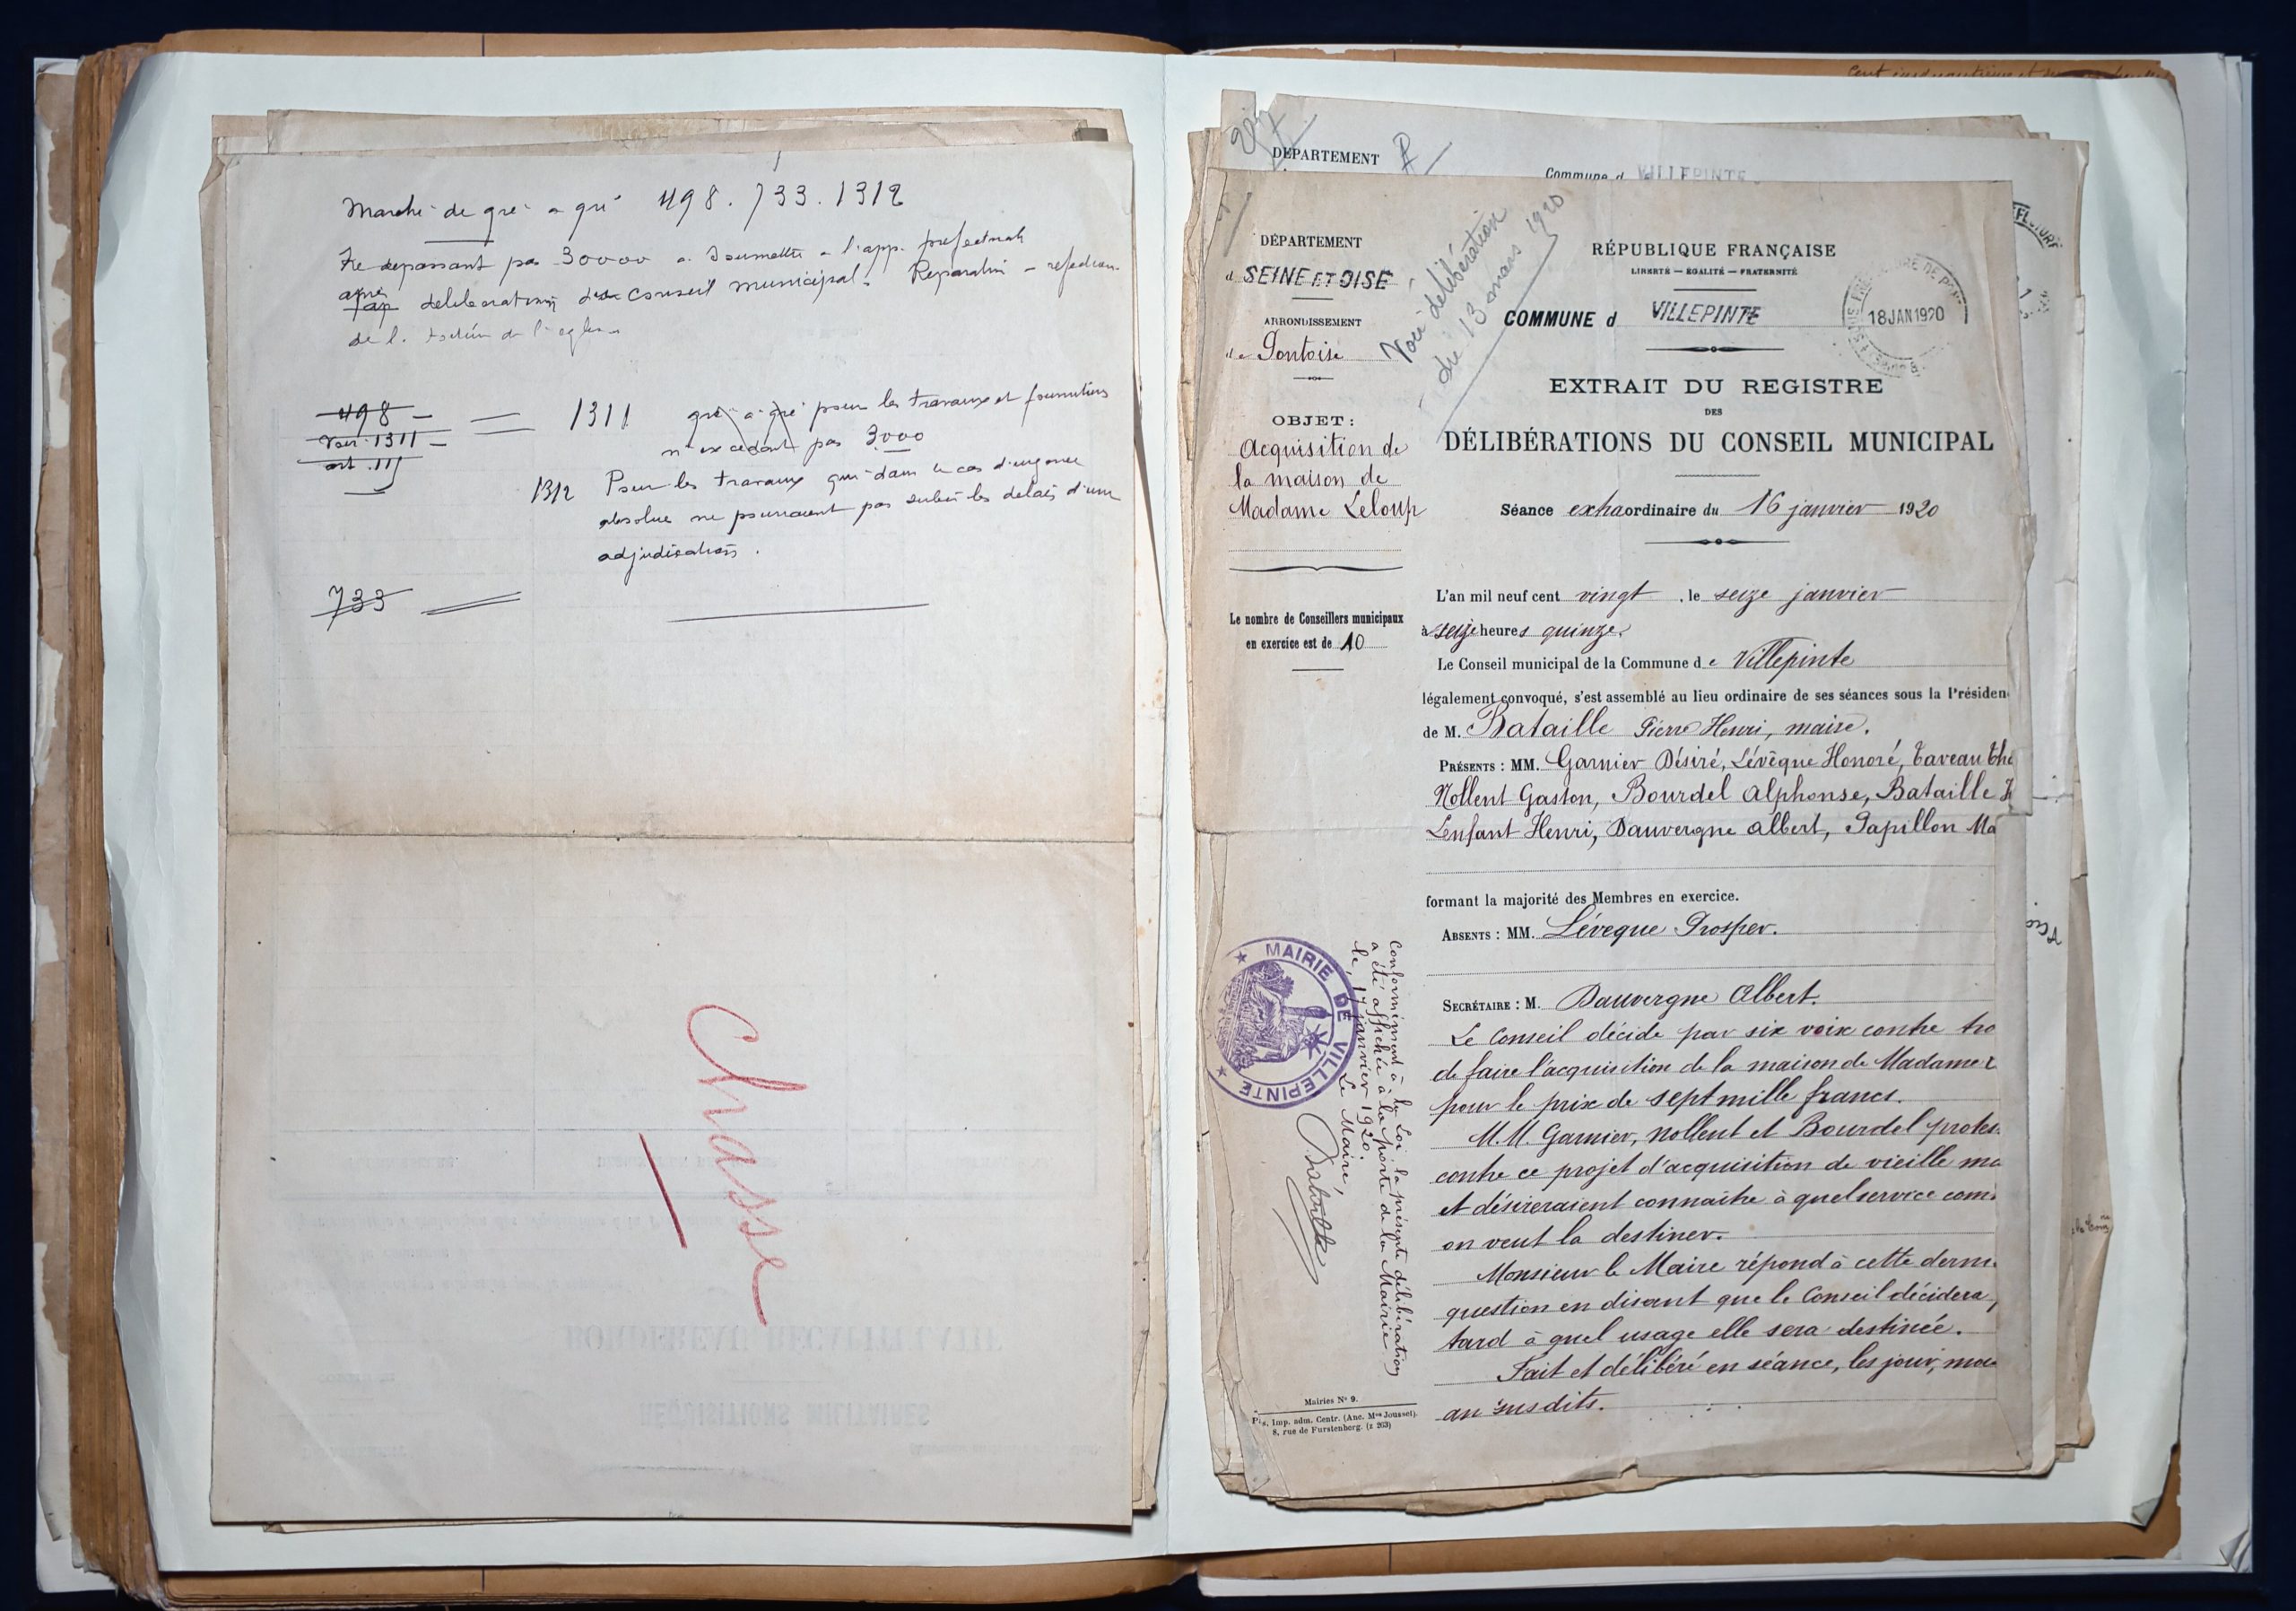 Marché de gré a gré 498. 733. 1312
Ne depassant pas 30000 a soumettre a l'app. prefectorale
après deliberation du Conseil municipal. Reparation - refection
de l. toiture de l'eglise
498 — 1311 gré a gré pour les travaux et fournitures
voir 1311 — n'excedant pas 3000
art. 115
1312 Pour les travaux qui dans le cas d'urgence
absolue ne pourraient pas subir les delais d'une
adjudication.
733
Chasse
BORDEREAU RÉCAPITULATIF
RÉQUISITIONS MILITAIRES
DÉPARTEMENT
Commune d VILLEPINTE
DÉPARTEMENT
d SEINE ET OISE
ARRONDISSEMENT
de Pontoise
OBJET :
Acquisition de
la maison de
Madame Leloup
Le nombre de Conseillers municipaux
en exercice est de 10
Voir délibération
du 13 mars 1920
RÉPUBLIQUE FRANÇAISE
LIBERTÉ — ÉGALITÉ — FRATERNITÉ
COMMUNE d VILLEPINTE
18 JAN 1920
EXTRAIT DU REGISTRE
DES
DÉLIBÉRATIONS DU CONSEIL MUNICIPAL
Séance extraordinaire du 16 janvier 1920
L'an mil neuf cent vingt, le seize janvier
à seize heures quinze.
Le Conseil municipal de la Commune de Villepinte
légalement convoqué, s'est assemblé au lieu ordinaire de ses séances sous la Présiden
de M. Bataille Pierre Henri, maire.
PRÉSENTS : MM. Garnier Désiré, Lévêque Honoré, Taveau Thé
Nollent Gaston, Bourdel Alphonse, Bataille
Lenfant Henri, Dauvergne Albert, Papillon Ma
formant la majorité des Membres en exercice.
ABSENTS : MM. Lévêque Prosper.
SECRÉTAIRE : M. Dauvergne Albert.
Le Conseil décide par six voix contre tro
de faire l'acquisition de la maison de Madame L
pour le prix de sept mille francs.
M.M. Garnier, Nollent et Bourdel protes
contre ce projet d'acquisition de vieille ma
et désireraient connaître à quel service com
on veut la destiner.
Monsieur le Maire répond à cette derni
question en disant que le Conseil décidera
tard à quel usage elle sera destinée.
Fait et délibéré en séance, les jour, moi
an susdits.
Conformément à la Loi la présente délibération
a été affichée à la porte de la Mairie
le 17 janvier 1920.
Le Maire,
Bataille
MAIRIE DE VILLEPINTE
Mairies N° 9.
Pis, Imp. adm. Centr. (Anc. Mon Jousset).
8, rue de Furstenberg. (z 263)